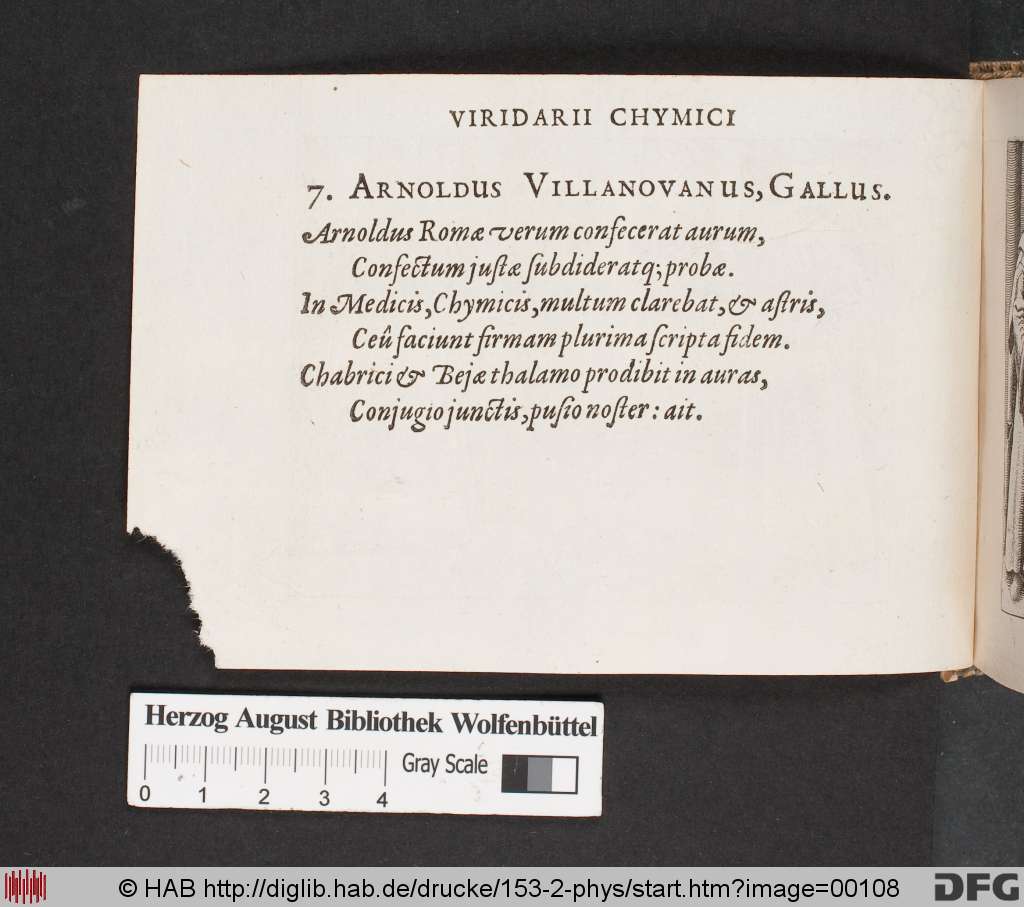 VIRIDARII CHYMICI
7. ARNOLDUS VILLANOVANUS, GALLUS.
Arnoldus Romæ verum confecerat aurum,
Confectum juſtæ ſubdideratq; probæ.
In Medicis, Chymicis, multum clarebat, & aſtris,
Ceû faciunt firmam plurima ſcripta fidem.
Chabrici & Bejæ thalamo prodibit in auras,
Conjugio junctis, puſio noſter: ait.
Herzog August Bibliothek Wolfenbüttel
Gray Scale
0 1 2 3 4
© HAB http://diglib.hab.de/drucke/153-2-phys/start.htm?image=00108
DFG